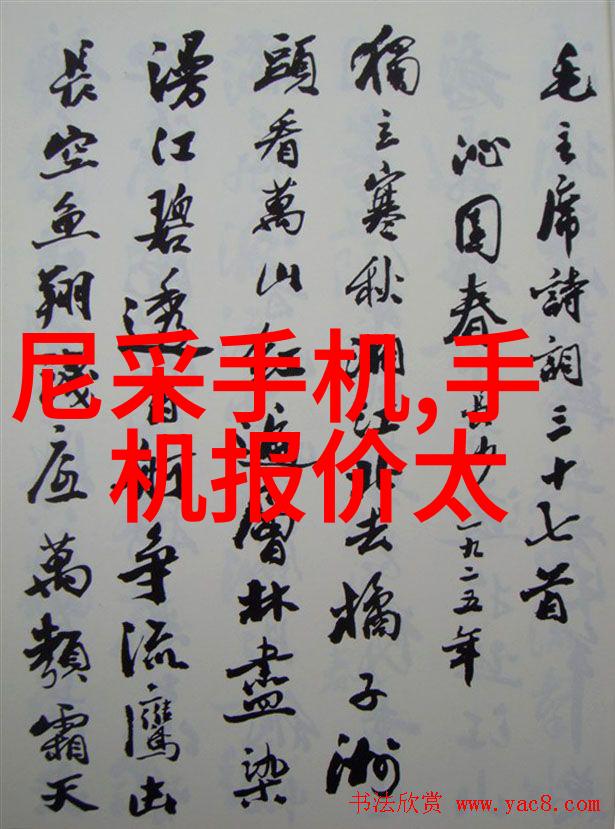 毛主席詩詞三十七首
沁园春 長沙 一九二五年
獨立寒秋湘江北去橘子洲
頭看萬山红遍層林盡染
漫江碧透百舸争流鷹击
長空鱼翔淺底萬類霜天
尼采手机,手
机报价太
书法欣赏 www.yac8.com